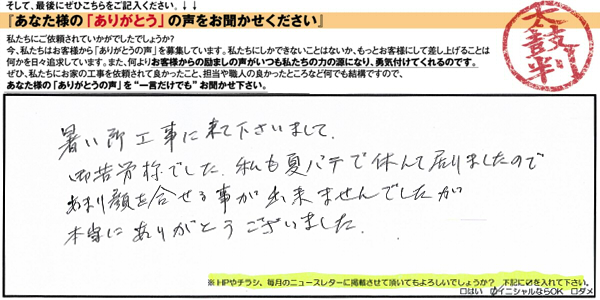 そして、最後にぜひこちらをご記入ください。↓↓
『あなた様の「ありがとう」の声をお聞かせください』
私たちにご依頼されていかがでしたでしょうか?
今、私たちはお客様から「ありがとうの声」を募集しています。私たちにしかできないことはないか、もっとお客様にして差し上げることは
何かを日々追求しています。また、何よりお客様からの励ましの声がいつも私たちの力の源になり、勇気付けてくれるのです。
ぜひ、私たちにお家の工事を依頼されて良かったこと、担当や職人の良かったところなど何でも結構ですので、
あなた様の「ありがとうの声」を"一言だけでも"お聞かせ下さい。
太鼓判
暑い所工事に来て下さいまして、
御苦労様でした。私も夏バテで休んで居りましたので
あまり顔を合せる事が出来ませんでしたが
本当にありがとうございました。
※HPやチラシ、毎月のニュースレターに掲載させて頂いてもよろしいでしょうか? 下記に☑を入れて下さい。
□はい ☑イニシャルならOK □ダメ